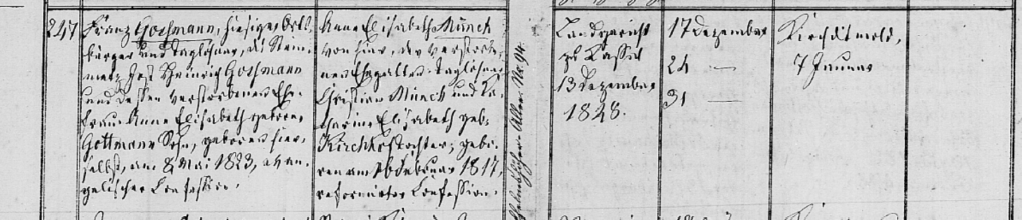 247
Franz Gossmann, hiesiger Orts-
bürger und Taglöhner, des Stein-
metz Jost Heinrich Gossmann
und dessen verstorbenen Ehe-
frau Anne Elisabeth geborne
Gottmann Sohn, geboren hier-
selbst, am 8 Mai 1823, evan-
gelischer Confession.
Anne Elisabeth Münch
von hier, der verstorbe-
nen Ehegatten Taglöhner
Christian Münch und Ca-
tharine Elisabeth geb.
Kirchhof Tochter, gebo-
ren am 16 Februar 1817,
reformirter Confession.
No 94.
Landgericht
zu Cassel
13 Dezember
1848.
17 Dezember
24 —
31 —
Kirchditmold,
7 Januar